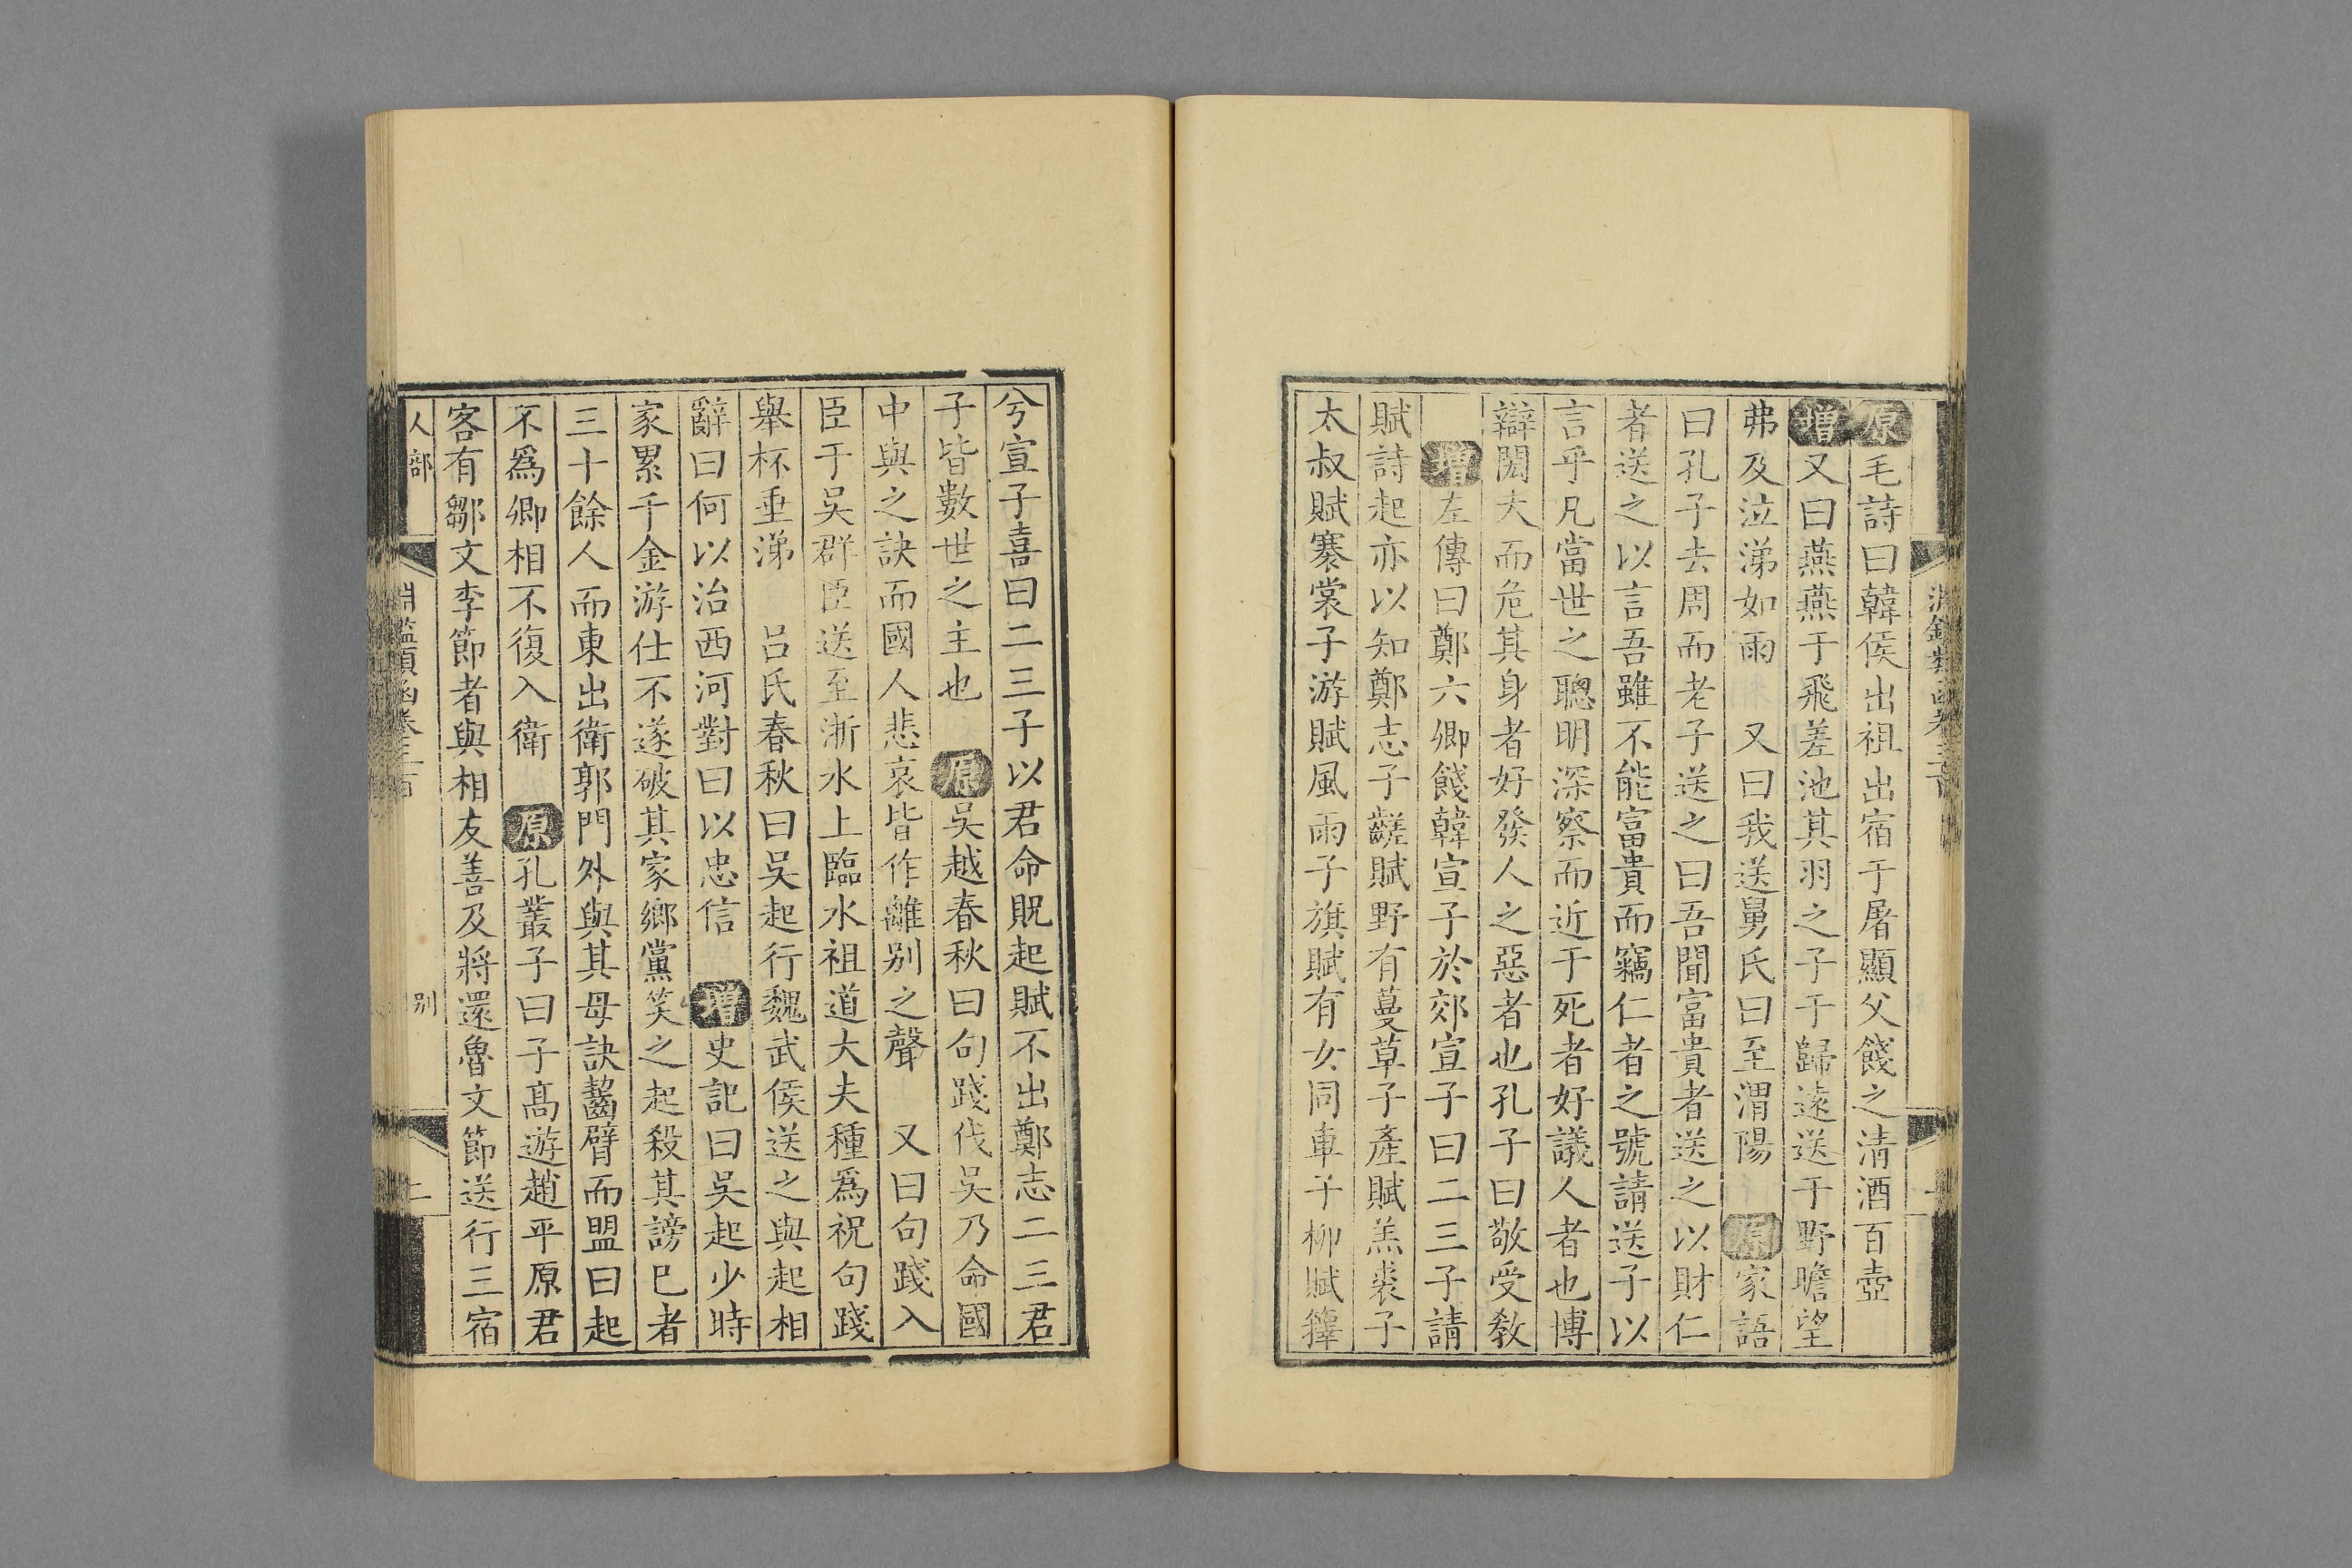 原毛詩曰韓侯出祖出宿于屠顯父餞之清酒百壺
增又曰燕燕于飛差池其羽之子于歸遠送于野瞻望
弗及泣涕如雨　又曰我送舅氏曰至渭陽　原家語
曰孔子去周而老子送之曰吾聞富貴者送之以財仁
者送之以言吾雖不能富貴而竊仁者之號請送子以
言乎凡當世之聰明深察而近于死者好議人者也博
辯閎大而危其身者好發人之惡者也孔子曰敬受教
增左傳曰鄭六卿餞韓宣子於郊宣子曰二三子請
賦詩起亦以知鄭志子齹賦野有蔓草子產賦羔裘子
太叔賦褰裳子游賦風雨子旗賦有女同車子柳賦籜
兮宣子喜曰二三子以君命貺起賦不出鄭志二三君
子皆數世之主也　原吳越春秋曰句踐伐吳乃命國
中與之訣而國人悲哀皆作離别之聲　又曰句踐入
臣于吳群臣送至浙水上臨水祖道大夫種爲祝句踐
舉杯垂涕　呂氏春秋曰吳起行魏武侯送之與起相
辭曰何以治西河對曰以忠信　增史記曰吳起少時
家累千金游仕不遂破其家鄉黨笑之起殺其謗巳者
三十餘人而東出衛郭門外與其母訣齧臂而盟曰起
不爲卿相不復入衛　原孔叢子曰子高遊趙平原君
客有鄒文李節者與相友善及將還魯文節送行三宿
人部
淵鑑類函卷三百
别
二